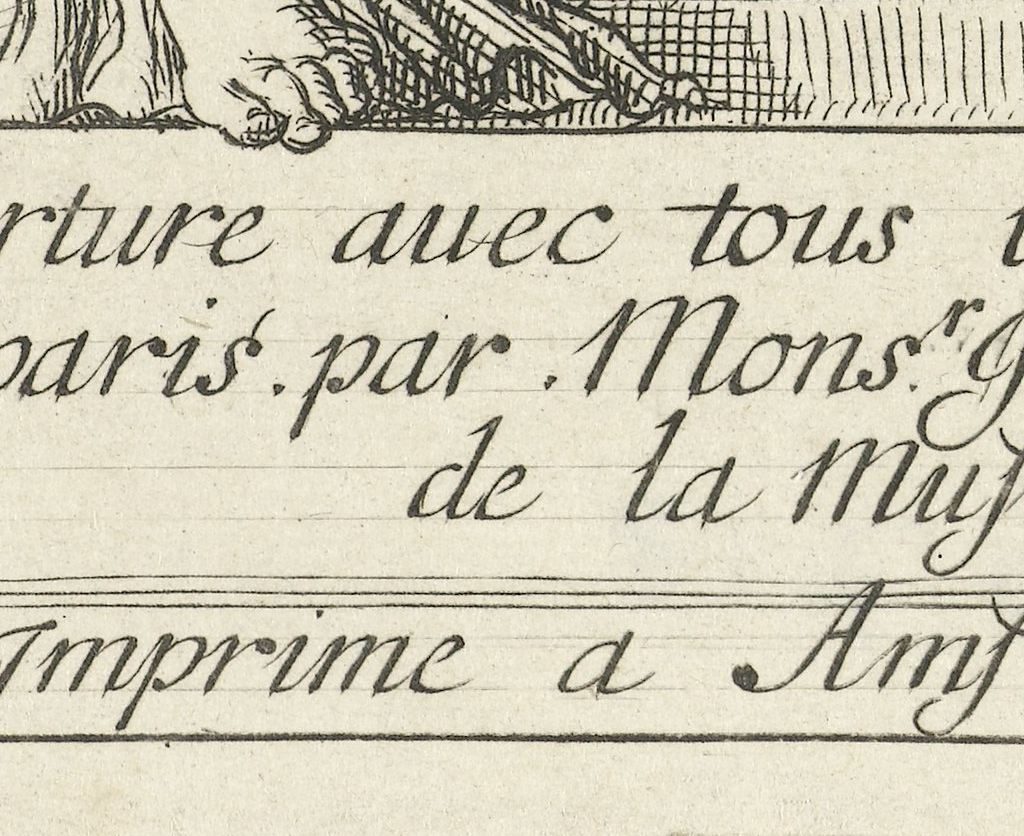 rture auec tous
paris. par. Mons.r G
de la Muſ
Imprime a Amſ